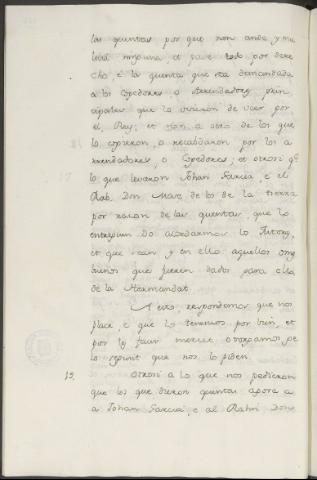 las quentas por que non anda y ma
et pase todo por dere
cho, e la quenta que sea demandada
a los Cojedores o Arrendadores, prin
cipales que lo ovieron de veer por
el Rey; et non a otro de los que
lo cojieron, o recabdaron por los a
rrendadores, o Cojedores; et otrosi q.e
lo que levaron Johan Garcia, e el
Rab. Don Mosse de los de la tierra
por razon de las quentas, que lo
entreguen Do acordarmos los Tutores,
et que sean y en ello aquellos omes
buenos que fueren dados para ello
de la Hermandat.
A esto, respondemos que nos
place, e que lo tenemos por bien, et
por les facer merced otorgamos ge
lo segunt que nos lo piden.
19. Otrosi a lo que nos pedieron
que los que dieron quentas agora a
a Johan Garcia, e al Rabui Don